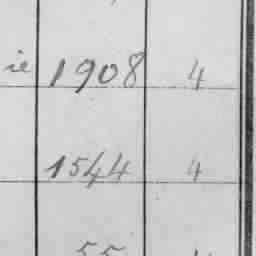 ie 1908 4
1544 4
55